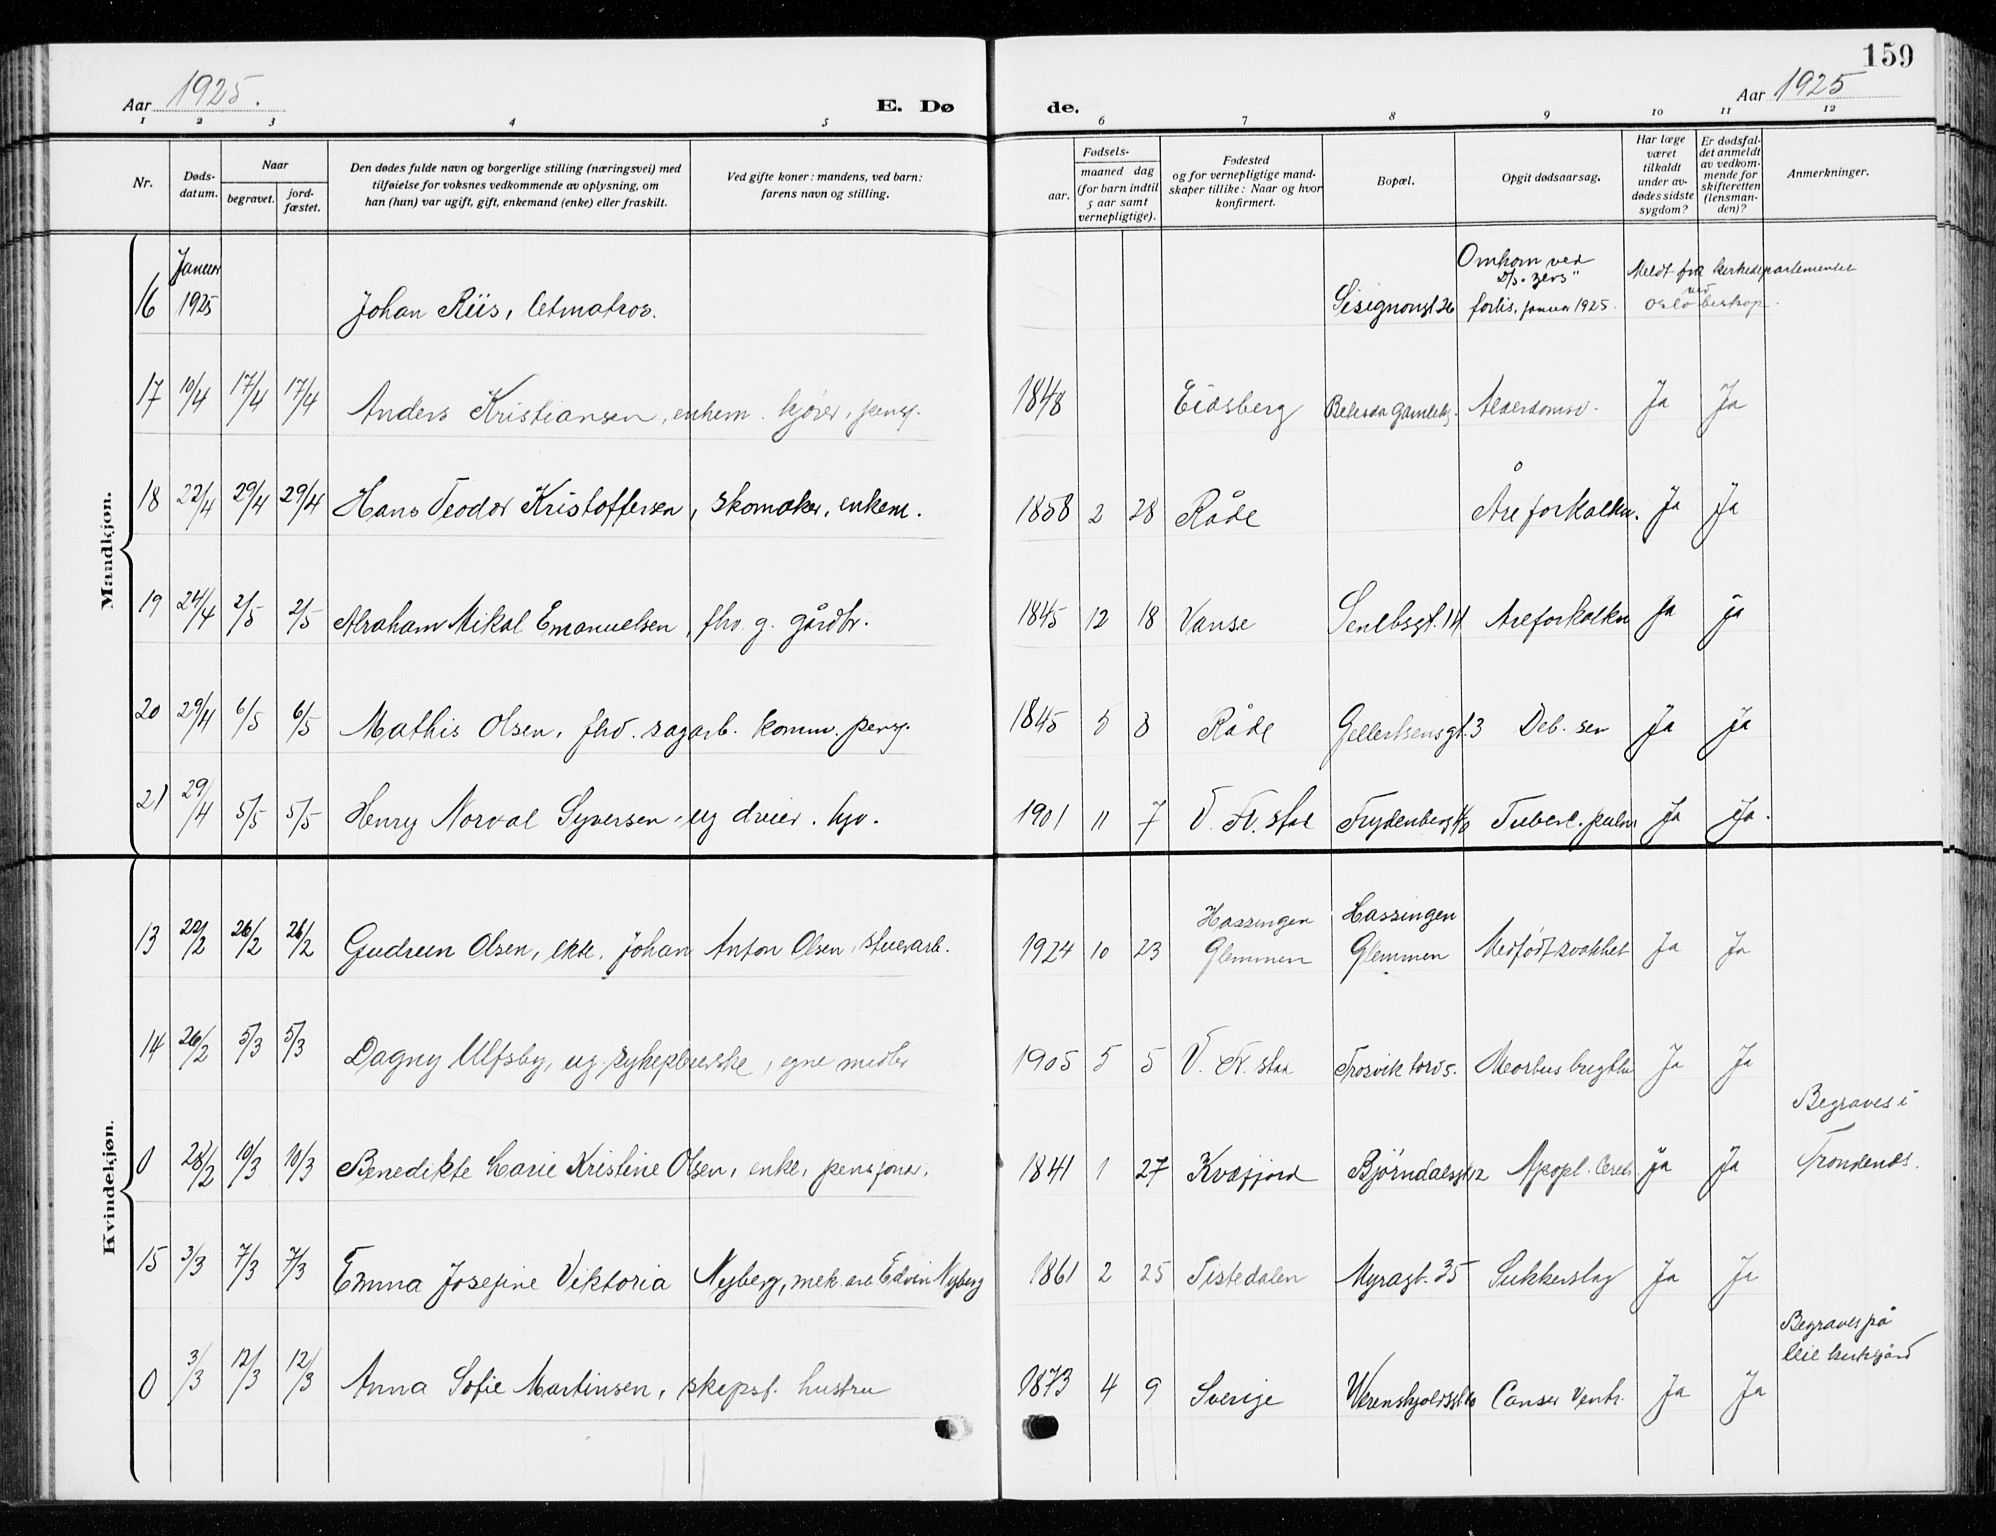 159
Aar 1925.
E. Dø
de.
Aar 1925
1 2 3 4 5 6 7 8 9 10 11 12
Nr.
Døds-
datum.
Naar
begravet.
jord-
fæstet.
Den dødes fulde navn og borgerlige stilling (næringsvei) med
tilføielse for voksnes vedkommende av oplysning, om
han (hun) var ugift, gift, enkemand (enke) eller fraskilt.
Ved gifte koner: mandens, ved barn:
farens navn og stilling.
Fødsels-
aar.
maaned dag
(for barn indtil
5 aar samt
vernepligtige).
Fødested
og for vernepligtige mand-
skaper tillike: Naar og hvor
konfirmert.
Bopæl.
Opgit dødsaarsag.
Har læge
været
tilkaldt
under av-
dødes sidste
sygdom?
Er dødsfal-
det anmeldt
av vedkom-
mende for
skifteretten
(lensman-
den)?
Anmerkninger.
Mandkjøn.
16 Januar 1925 Johan Riis, letmatros. Omkom ved forlis, januar 1925. Meldt fra kirkedepartementet ved Oslo biskop.
17 10/4 17/4 17/4 Anders Kristiansen, enkem. kjører, pensj. 1848 Eidsberg Betesda Gamleh. Alderdomsv. Ja Ja
18 22/4 29/4 29/4 Hans Teodor Kristoffersen, skomaker, enkem. 1858 2 28 Råde Åreforkalkn. Ja Ja
19 24/4 2/5 2/5 Abraham Mikal Emanuelsen, fhv. g. gårdbr. 1845 12 18 Vanse 14 Areforkalkn Ja Ja
20 29/4 6/5 6/5 Mathis Olsen, fhv. sagarb. komm. pensj. 1845 5 8 Råde Gellertsensgt. 3 Deb. sen Ja Ja
21 29/4 5/5 5/5 Henry Norval Syversen, ug dreier. 1901 11 7 V. Fr.stad Tuberl. pulm Ja Ja.
Kvindekjøn.
13 22/2 26/2 26/2 Gudrun Olsen, ekte. Johan Anton Olsen, stuerarb. 1924 10 23 Hassingen Glemmen Hassingen Glemmen Medfødt svakhet Ja Ja
14 26/2 5/3 5/3 Dagny Ulfsby, ug. sykepleierske, egne midler 1905 5 5 V. Fr.stad Trosvik torv 5. Ja Ja
0 28/2 10/3 10/3 Benedikte Marie Kristine Olsen, enke, pensjoner. 1841 1 27 Kvæfjord Bjørndalsgt 12 Apopl. Cereb. Ja Ja Begraves i Trondenes.
15 3/3 7/3 7/3 Emma Josefine Viktoria Nyberg, mek. arb Edvin Nyberg 1861 2 25 Tistedalen Myragt. 35 Sukkersyg Ja Ja
0 3/3 12/3 12/3 Anna Sofie Martinsen, skipsf. hustru 1873 4 9 Sverige Canser Ventr. Ja Ja Begraves på kirkegård